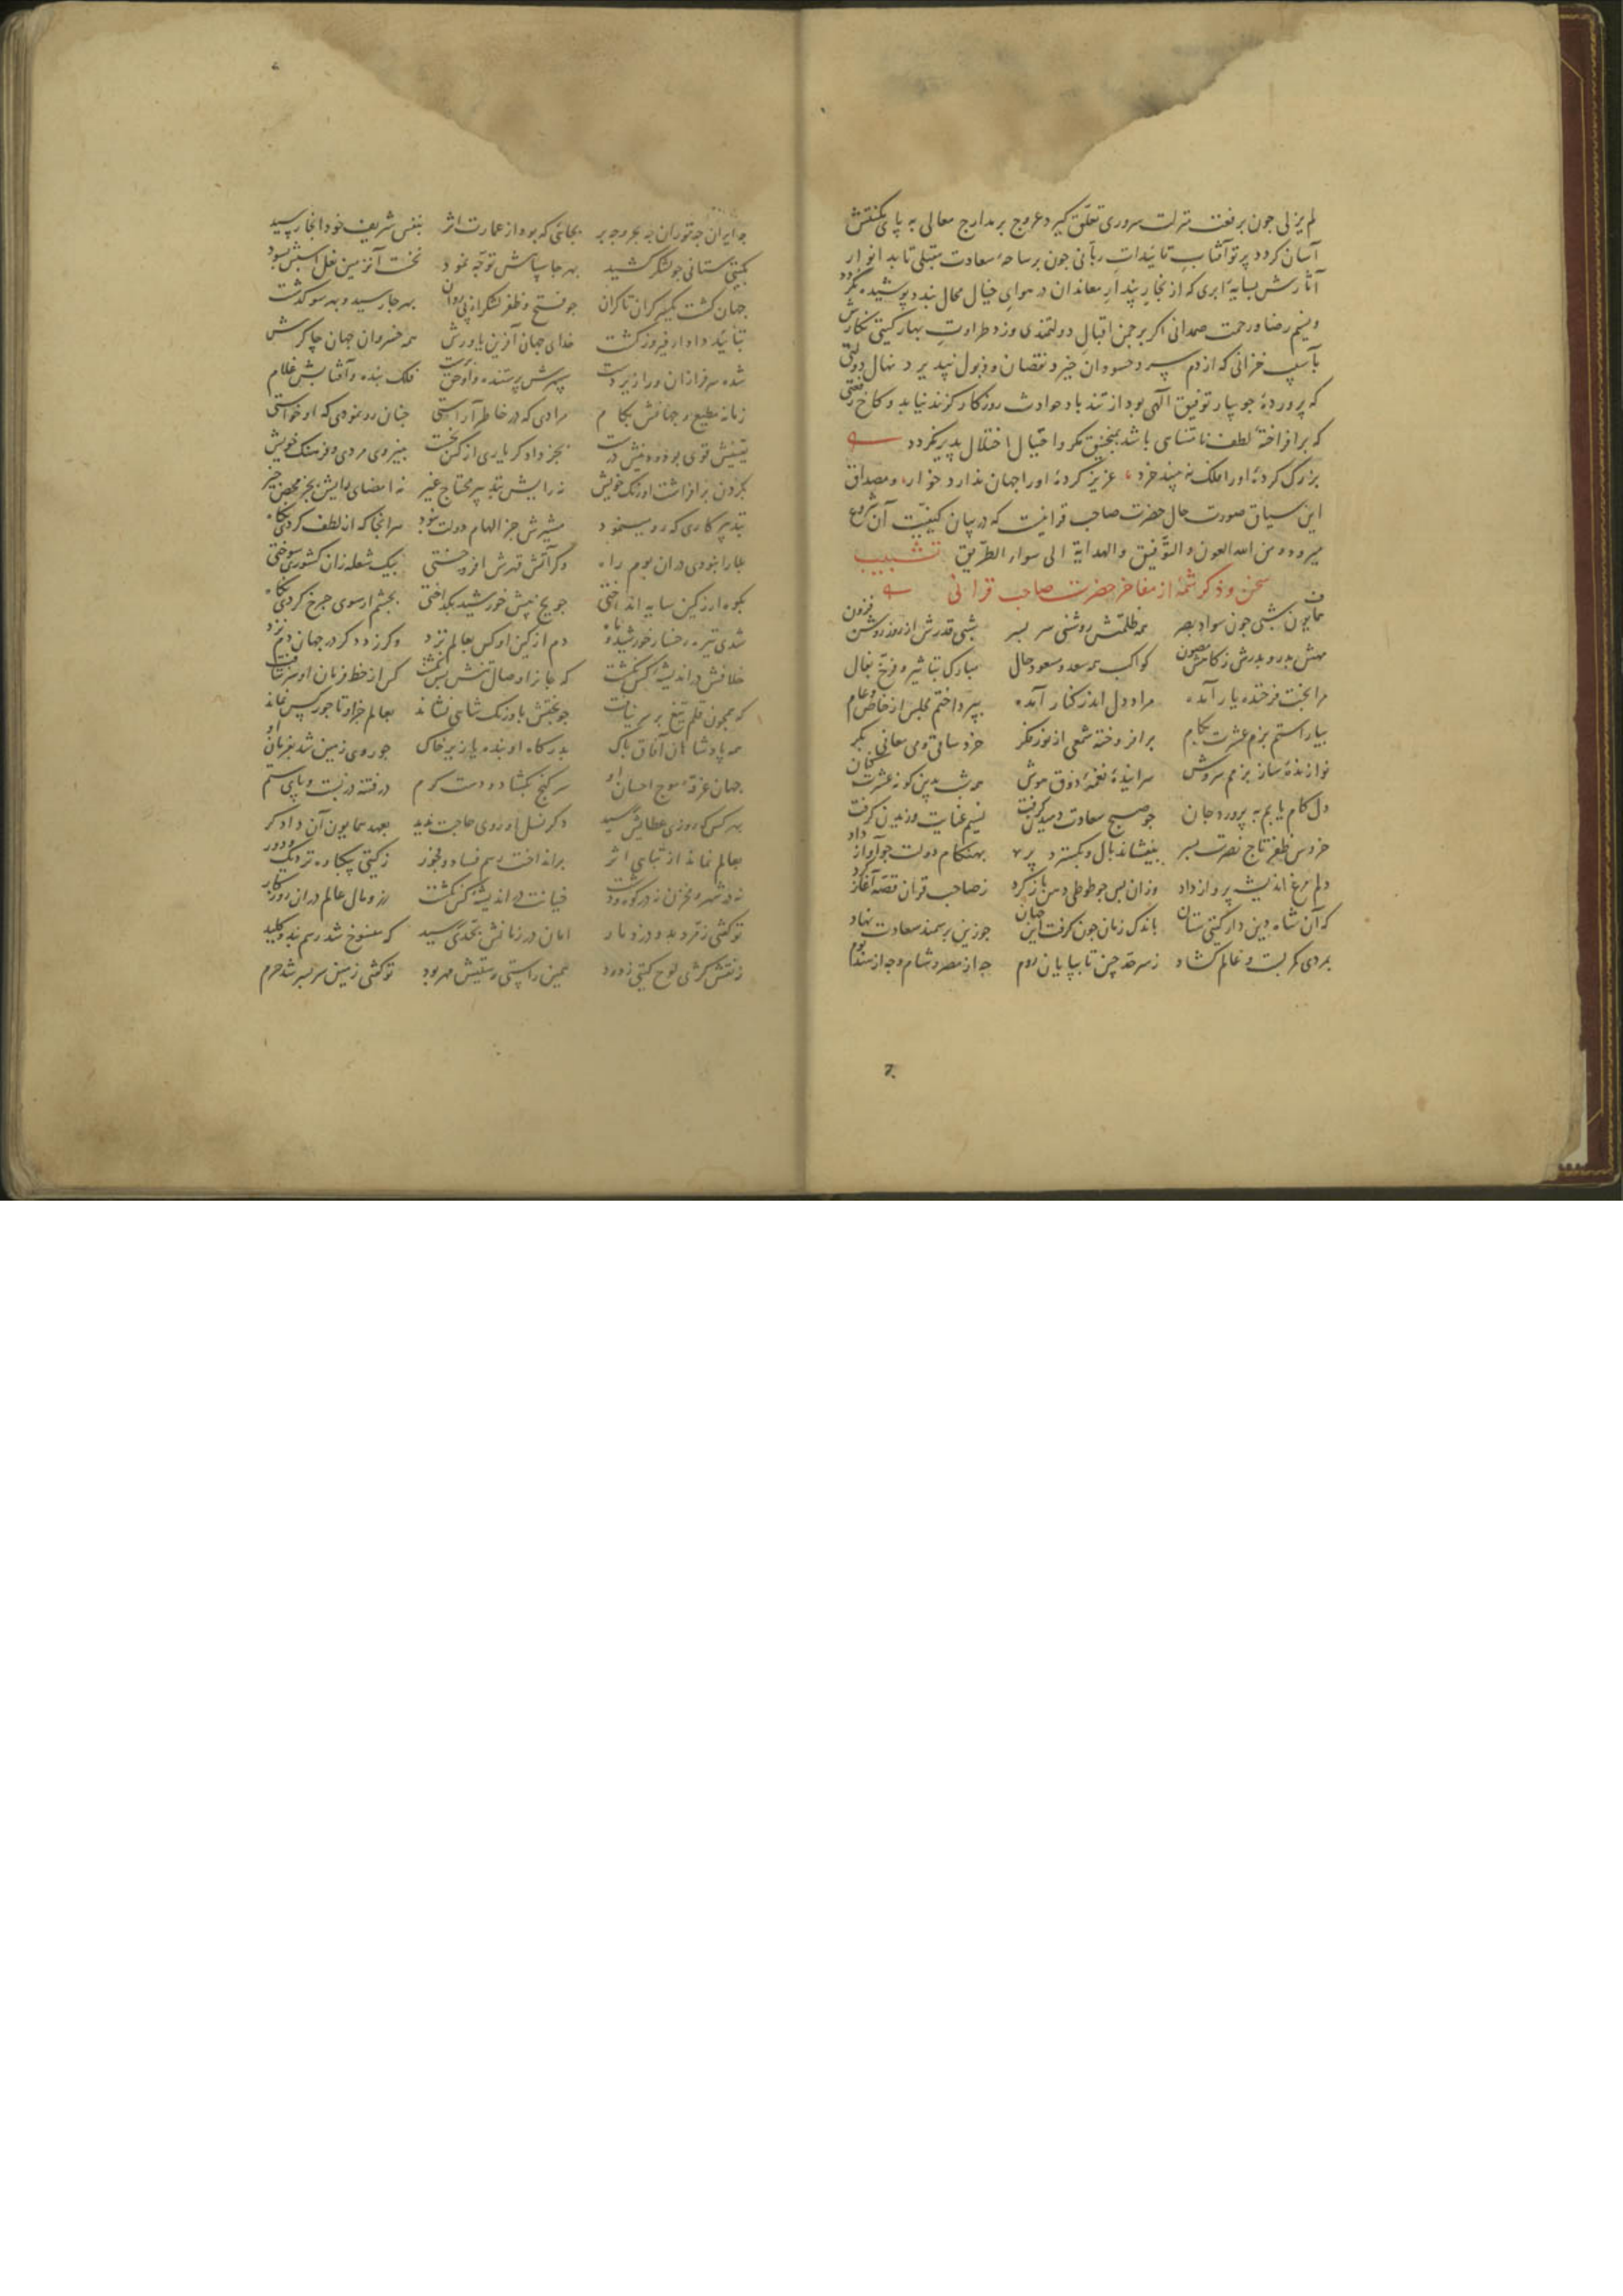 لم یزلی جون برفعت منزلت سروری تعلق کیرد عروج بر مدارج معالی به پای مکنتش
آسان کردد پرتو آفتاب تائیداتِ ربّانی جون بر ساحهٔ سعادت مقبلی تابد انوار
آثارش بسایهٔ ابری که از بخارِ پندارِ معاندان در هوایِ خیال محال بندد پوشیده نکردد
و نسیم رضا و رحمت صمدانی اکر بر جمن اقبالِ دولتمندی وزد طراوتِ بهار کیتی نکارش
بآسیب خزانی که از دم سرد حسودان خیزد نقصان و ذبول نپدیرد نهال دولتی
که پروردهٔ جویبار توفیق آلهی بود از تندباد حوادث روزکار کزند نیابد و کاخ رفعتی
که برافراختهٔ لطف نامتناهی باشد بمنجنیق مکر و احتیال اختلال پدیر نکردد
بزرک کردهٔ او را فلک نه بیند خرد عزیز کردهٔ او را جهان ندارد خوار و مصداق
این سیاق صورت حال حضرت صاحب قرانیست که در بیان کیفیّت آن شروع
میرود و من الله العون و التوفیق و الهدایة الی سواء الطریق تشبیب
سخن و ذکر شمّهٔ از مفاخر حضرت صاحب قرانی
همایون شبی جون سواد بصر همه ظلمتش روشنی سر بسر شبی قدرش از روز روشن فزون
مهش بدر و بدرش ز کاهش مصون کواکب همه سعد و مسعود حال مبارک تباشیر و فرّخ بفال
مرا بخت فرخنده یار آمده مراد دل اندر کنار آمده بپرداختم مجلس از خاص و عام
بیاراستم بزم عشرت بکام برافروخته شمعی از نور فکر خرد ساقی و می معانی بکر
نوازندهٔ ساز بزمم سروش سرایندهٔ نغمهٔ ذوق هوش همه شب بدین کونه عشرت کنان
دل کام یابم به پرورد جان جو صبح سعادت دمیدن کرفت نسیم عنایت وزیدن کرفت
خروس ظفر تاج نصرت بسر بیفشاند بال و بکسترد پر بهنکام دولت جو آواز داد
دلم مرغ اندیشه پرواز داد وزان پس جو طوطی دهن باز کرد ز صاحب قران قصّه آغاز کرد
که آن شاه دین دار کیتی ستان باندک زمان جون کرفت این جهان جو زین بر سمند سعادت نهاد
بمردی کمر بست و عالم کشاد ز سرحد جین تا بپایان روم جه از مصر و شام و جه از هند بوم
جه ایران جه توران جه بحر و جه بر بجائی که بود از عمارت اثر بنفس شریف خود انجا رسید
بکیتی ستانی جو لشکر کشید بهر جا سپاهش توجّه نمود نخست آن زمین نعل اسبش بسود
جهان کشت یکسر کران تا کران جو فتح و ظفر لشکر از پی روان بهر جا رسید و بهر سو کذشت
بتائید دادار فیروز کشت خدای جهان آفرین یاورش همه خسروان جهان چاکرش
شده سرفرازان ورا زیر دست سپهرش پرستنده و او حق پرست فلک بنده و آفتابش غلام
زمانه مطیع و جهانش بکام مرادی که در خاطر آراستی جنان رو نمودی که او خواستی
یقینش قوی بود و دینش درست بجز داد کر یاری از کس نجست بنیروی مردی و فرهنک خویش
بکردن برافراشت اورنک خویش نه رایش بتدبیر محتاج غیر نه امضای رایش بجز محض خیر
بتدبیر کاری که رو مینمود مشیرش جز الهام دولت نبود هر انجا که از لطف کردی نکاه
بلا را نبودی در ان بوم راه وکر آتش قهرش افروختی بیک شعله زان کشوری سوختی
بکوه ار ز کین سایه انداختی جو یخ پیش خورشید بکداختی بخشم ار سوی جرخ کردی نکاه
شدی تیره رخسار خورشید و ماه دم از کین او کس بعالم نزد وکر زد دکر در جهان دم نزد
خلافش در اندیشهٔ کس نکشت که جان از وصال تنش بس نکشت کس از خط فرمان او سر نتافت
که همجون قلم تیغ بر سر نیافت جو بختش باورنک شاهی نشاند بعالم جز او تاجور کس نماند
همه پادشاهان آفاق پاک بدرکاه او بنده یا زیر خاک جو روی زمین شد بفرمان او
جهان غرقهٔ موج احسان او سر کنج بکشاد و دست کرم در فتنه در بست و پای ستم
بهر کس که روزی عطایش رسید دکر نسل او روی حاجت ندید بعهد همایون آن دادکر
بعالم نماند از تباهی اثر برانداخت رسم فساد و فجور ز کیتی بیکباره نزدیک و دور
نه در شهر و مخزن نه در کوه و دشت خیانت در اندیشهٔ کس نکشت زر و مال عالم در ان روزکار
تو کفتی ز قدر بد و درد مار امان در زمانش بحدّی رسید که منسوخ شد رسم بند و کلید
ز نقش کژی لوح کیتی زدود همین راستی و ستیش مهر بود تو کفتی زمین سر بسر شد حرم